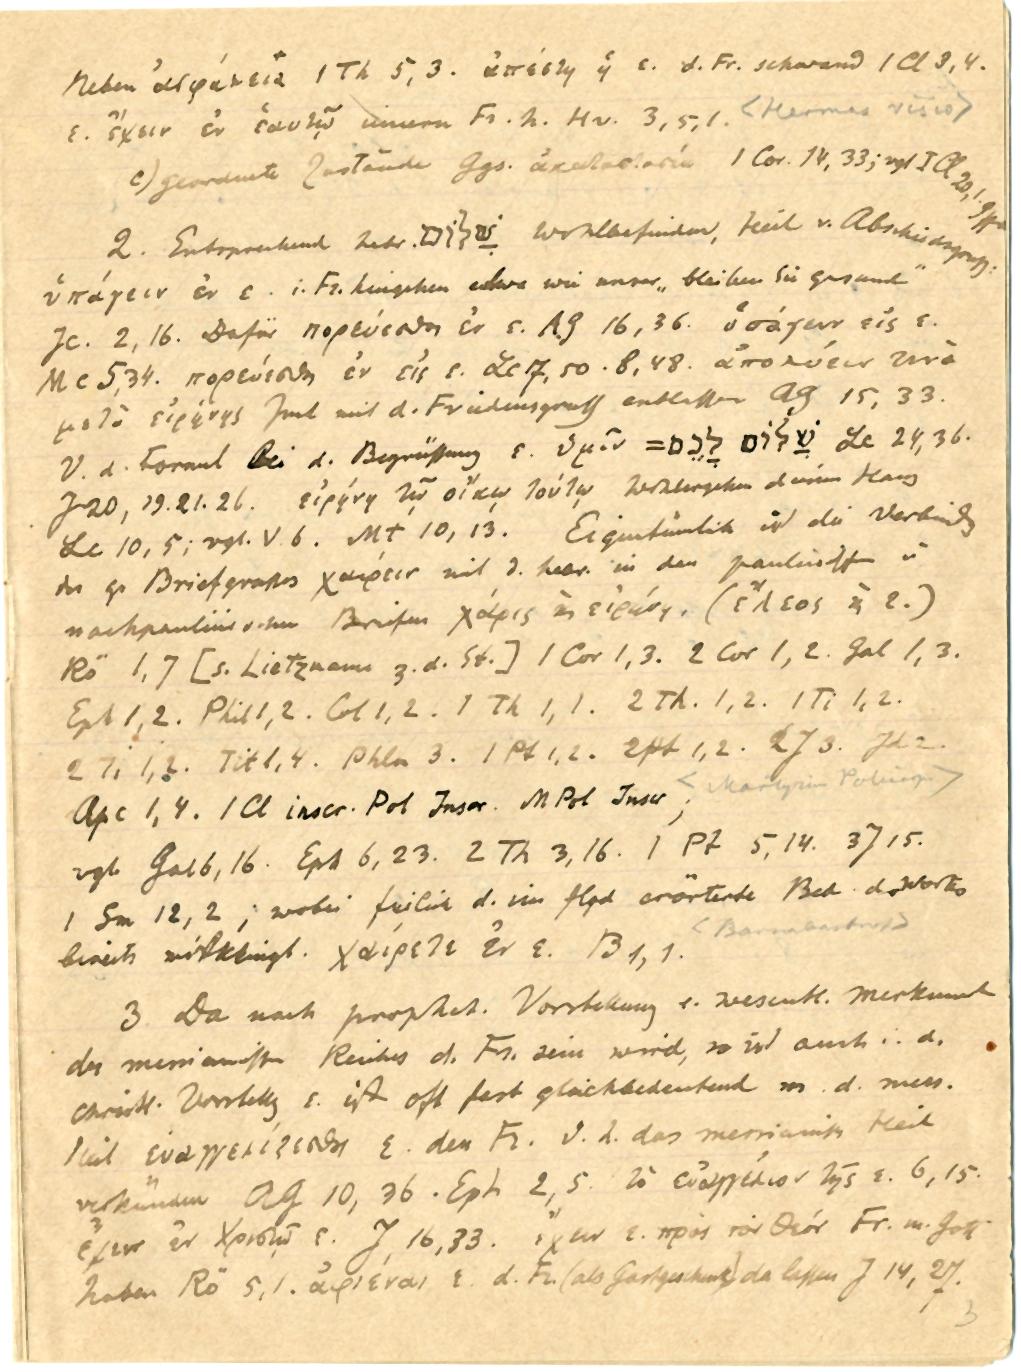 Neben ἀσφάλεια 1 Th 5,3. ἀπέστη ἡ ε. d. Fr. schwand 1 Cl 3,4.
ε. ἔχειν ἐν ἑαυτῷ innern Fr. h. Hv. 3,5,1. <Hermas visio>
c) geordnete Zustände Ggs. ἀκαταστασία 1 Cor. 14,33; vgl 1 Cl 20,1.
2. Entsprechend hebr. שָׁלוֹם Wohlbefinden, Heil v. Abschiedsgruß:
ὑπάγειν ἐν ε. i. Fr. hingehen etwa wie unser „bleiben Sie gesund"
Jc. 2,16. Dafür πορεύεσθαι ἐν ε. AG 16,36. ὑπάγειν εἰς ε.
Mc 5,34. πορεύεσθαι ἐν εἰς ε. Lc 7,50. 8,48. ἀπολύειν τινὰ
μετὰ εἰρήνης Jmd mit d. Friedensgruß entlassen AG 15,33.
V. d. Formel bei d. Begrüßung ε. ὑμῖν = שָׁלוֹם לָכֶם Lc 24,36.
J 20,19.21.26. εἰρήνη τῷ οἴκῳ τούτῳ Wohlergehen diesem Haus
Lc 10,5; vgl. V. 6. Mt 10,13. Eigentümlich ist die Verbindg
des gr Briefgrußes χαίρειν mit d. hebr. in den paulinischen u
nachpaulinischen Briefen χάρις κ. εἰρήνη. (ἔλεος κ. ε.)
Rö 1,7 [s. Lietzmann z. d. St.] 1 Cor 1,3. 2 Cor 1,2. Gal 1,3.
Eph 1,2. Phil 1,2. Col 1,2. 1 Th 1,1. 2 Th. 1,2. 1 Ti 1,2.
2 Ti 1,2. Tit 1,4. Phlm 3. 1 Pt 1,2. 2 Pt 1,2. 2 J 3. Jd 2.
Apc 1,4. 1 Cl inscr. Pol Inscr. M Pol Inscr; <Martyrium Polycarpi>
vgl. Gal 6,16. Eph 6,23. 2 Th 3,16. 1 Pt 5,14. 3 J 15.
1 Sm 12,2; wobei freilich d. im flgd erörterte Bed. d. Wortes
bereits mitklingt. χαίρετε ἐν ε. B 1,1. <Barnabasbrief>
3 Da nach prophet. Vorstellung e. wesentl. Merkmal
des messianischen Reiches d. Fr. sein wird, so ist auch i. d.
christl. Vorstellg ε. ist oft fast gleichbedeutend m. d. mess.
Heil εὐαγγελίζεσθαι ε. den Fr. d. h. das messianische Heil
verkünden AG 10,36. Eph 2,5. τὸ εὐαγγέλιον τῆς ε. 6,15.
ἔχειν ἐν Χριστῷ ε. J, 16,33. ἔχειν ε. πρὸς τὸν θεόν Fr. m. Gott
haben Rö 5,1. ἀφιέναι ε. d. Fr. (als Gastgeschenk) da lassen J 14,27.
3